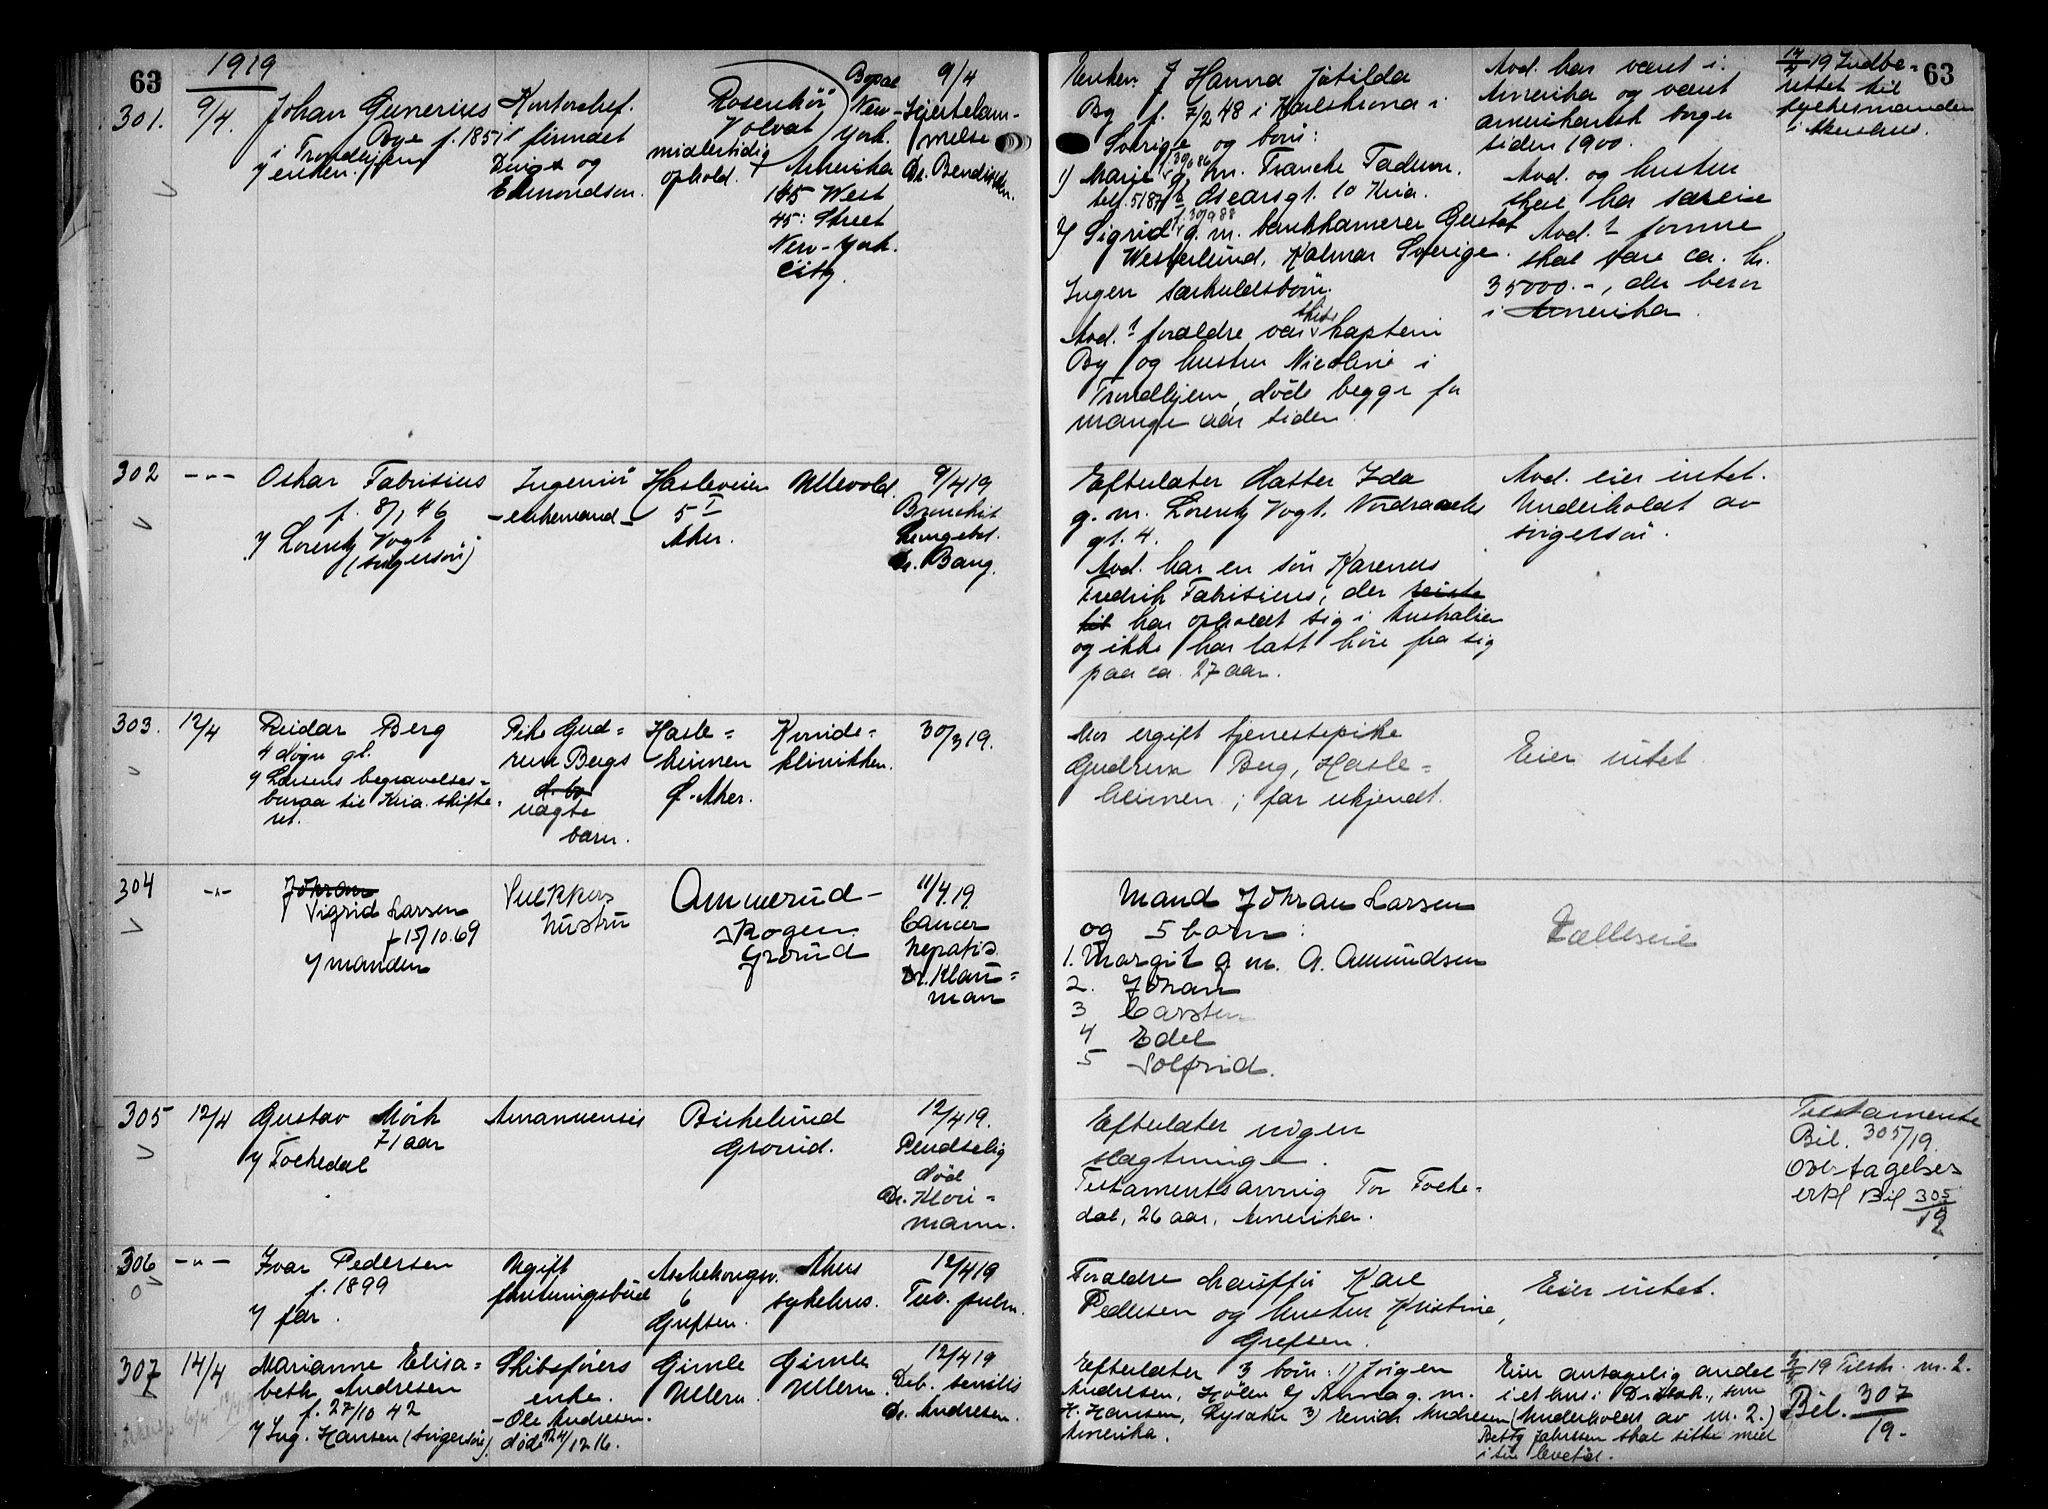 63
1919
301.
9/4.
Johan Gunerius
Bye f. 1851
i Trondhjem
enken.
Kontorchef.
i firmaet
og
Edmondson.
Volvat
midlertidig
ophold.
Bopæl
New-
York.
Amerika
145 West
45: Street
New-York.
City.
9/4
Hjertelam-
melse
Dr. Bendixen.
302
Oskar Fabrisius
f. 8/1 46
Lorentz Vogt
(svigersøn)
Ingeniør
-enkemand-
Hasleveien
5 I
Aker.
Ullevold.
9/4 19
Bronchit
Lungebet.
Dr. Bang.
303.
12/4
Reidar Berg
4 døgn gl.
Larsens begravelses=
buraa til Kria. skifte-
ret.
Pike Gud=
run Bergs
uægte
barn.
Hasle=
heimen
Ø. Aker.
Kvinde=
klinikken.
30/3 19.
304
-"-
Johran
Sigrid Larsen
f 15/10.69
manden
hustru
Ammerud-
skogen
Grorud
11/4.19
Cancer
hepatis.
Dr. Klau=
man
305
12/4
Gustav Mörk
71 aar
Folkedal
Amanuensis
Birkelund
Grorud.
12/4 19.
Pludselig
död
Dr. Klou-
mann.
306
-"-
Ivar Pedersen
f. 1899
far.
Ugift
6
Grefsen.
Akers
sykehus.
12/4 19
Tub. pulm.
307
14/4
Marianne Elisa=
beth Andresen
f. 27/10 42
Ing. Hansen (svigersøn).
Skibsførers
enke.
-Ole Andresen.
døde 24/12 16.
Gimle
Ullern.
Gimle
Ullern.
12/4 19
Deb. senilis
Dr. Andresen.
63
Enken Hanna Jatilda
By f. 7/2 48 i Karlskrona i
Sverige og børn:
1) Marie g. m. Francke Fadum.
Oscarsgt. 10 Kria.
f. 30/9 88
2) Sigrid g. m. bankkamerer Gustaf
Westerlund, Kalmar Sverige.
Ingen særkuldsbörn.
Avd.s forældre var skibs kaptein
By og hustru Nicoline i
Trondhjem, døde begge for
mange aar siden.
Avd. har været i
Amerika og været
amerikansk borger
siden 1900.
Avd. og hustru
skal ha særeie
Avd.s formue
skal være ca. kr.
35000.-, der beror
i Amerika.
19 Indbe-
rettet til
fylkesmanden
i Akershus.
Efterlater datter Ida
g. m. Lorentz Vogt. Nordraaks
gt. 4.
Avd. har en søn Karenus
Fredrik Fabrisius, der reiste
til har opholdt sig i Australien
og ikke har latt høre fra sig
paa ca. 27 aar.
Avd. eier intet.
Underholdt av
svigersøn.
Mor ugift tjenestepike
Gudrun Berg, Hasle=
heimen; far ukjendt.
Eier intet.
Mand Johran Larsen
og 5 barn:
1. Margit g m. A. Amundsen
2. Johan
3 Carsten
4 Edel
5 Solfrid.
Fælleseie
Efterlater ingen
slægtninge.
Testamentsarving Tor Folke-
dal, 26 aar, Amerika.
Testamente
Bil. 305/19.
Overtagelses
erkl Bil 305/19
Forældre chauffør Karl
Pedersen og hustru Kristine,
Grefsen.
Eier intet.
Efterlater 3 børn: 1) Jörgen
Andresen, 2) Anna g. m.
H. Hansen, Lysaker 3) Andresen
Amerika.
Eier antagelig andel
i et hus i Drøbak, som
(Underholdt av nr. 2.)
Betty Jahrsen skal sitte med
i sin levetid.
19 Testm. nr. 2.
Bil. 307
19-